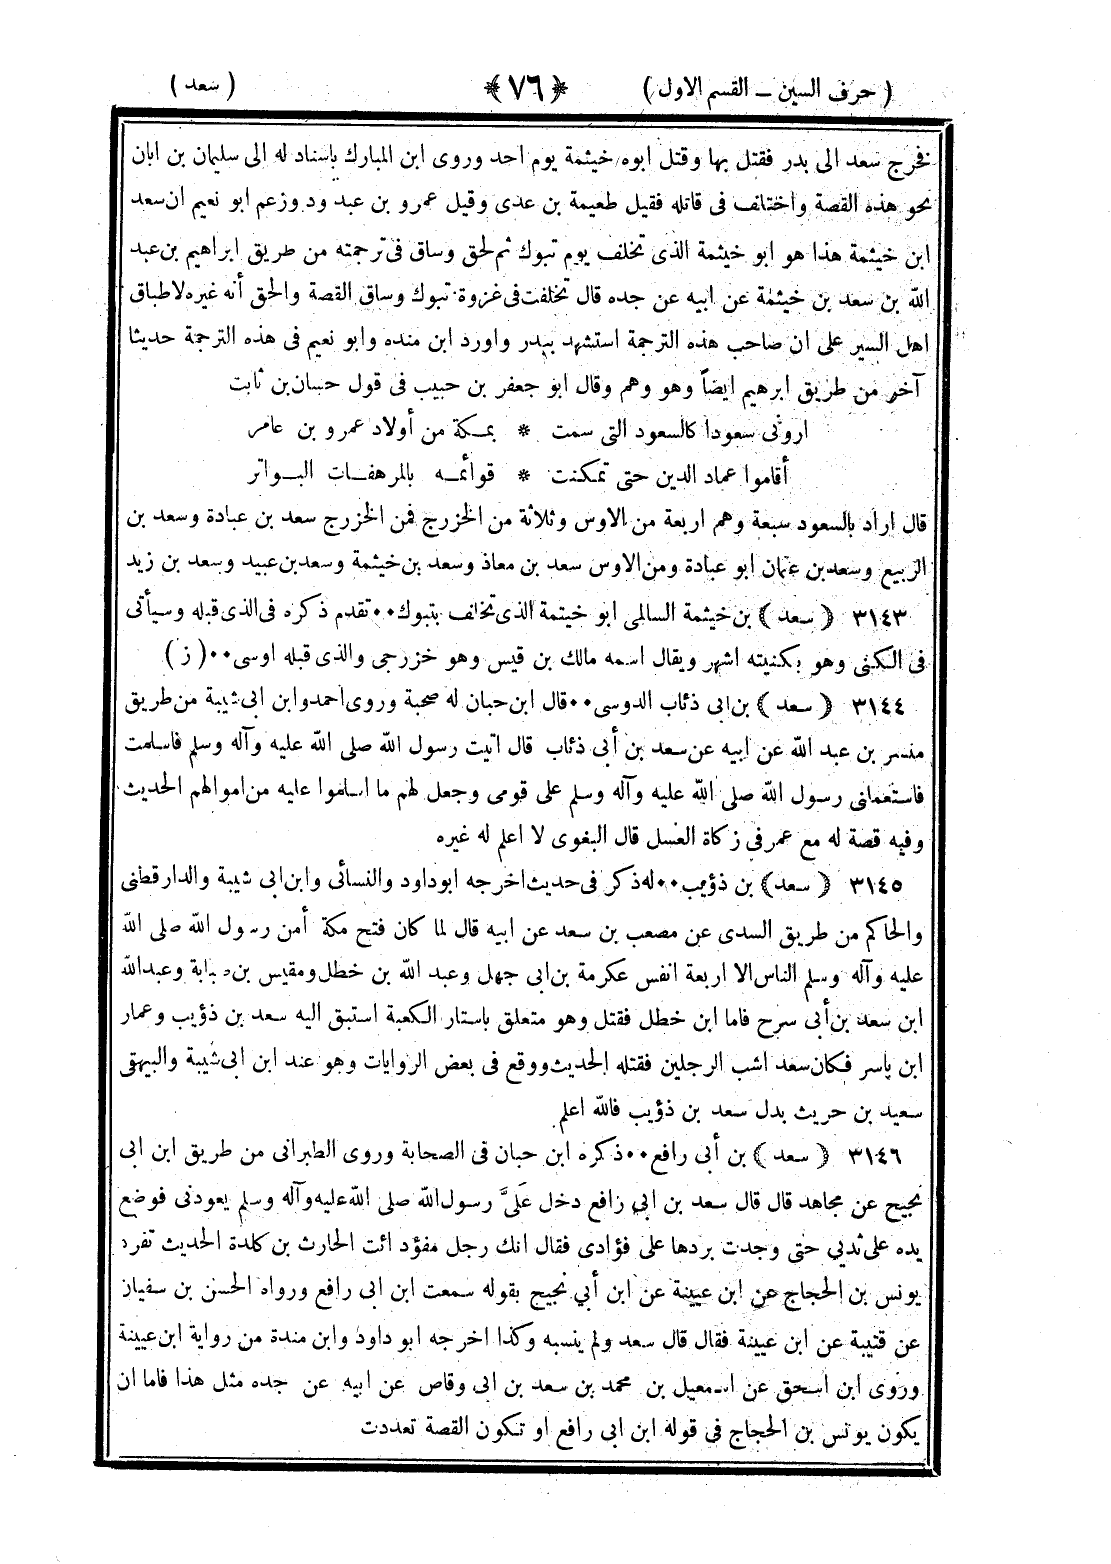 ( حرف السين – القسم الاول ) ﴿ ٧٦ ﴾ ( سعد )
فخرج سعد الى بدر فقتل بها وقتل ابوه خيثمة يوم احد وروى ابن المبارك باسناد له الى سليمان بن ابان
نحو هذه القصة واختلف فى قاتله فقيل طعيمة بن عدى وقيل عمرو بن عبد ود وزعم ابو نعيم ان سعد
ابن خيثمة هذا هو ابو خيثمة الذى تخلف يوم تبوك ثم لحق وساق فى ترجمته من طريق ابراهيم بن عبد
الله بن سعد بن خيثمة عن ابيه عن جده قال تخلفت فى غزوة تبوك وساق القصة والحق أنه غيره لاطباق
اهل السير على ان صاحب هذه الترجمة استشهد ببدر واورد ابن منده وابو نعيم فى هذه الترجمة حديثا
آخر من طريق ابرهيم ايضاً وهو وهم وقال ابو جعفر بن حبيب فى قول حسان بن ثابت
ارونى سعودا كالسعود التى سمت * بمكة من أولاد عمرو بن عامر
أقاموا عماد الدين حتى تمكنت * قوائمه بالمرهفات البواتر
قال اراد بالسعود سبعة وهم اربعة من الاوس وثلاثة من الخزرج فمن الخزرج سعد بن عبادة وسعد بن
الربيع وسعد بن عثمان ابو عبادة ومن الاوس سعد بن معاذ وسعد بن خيثمة وسعد بن عبيد وسعد بن زيد
٣١٤٣ ﴿ سعد ﴾ بن خيثمة السالمى ابو خيتمة الذى تخالف بتبوك٠٠تقدم ذكره فى الذى قبله وسيأتى
فى الكنى وهو بكنيته اشهر ويقال اسمه مالك بن قيس وهو خزرجى والذى قبله اوسى٠٠( ز )
٣١٤٤ ﴿ سعد ﴾ بن ابى ذئاب الدوسى٠٠قال ابن حبان له صحبة وروى احمد وابن ابى شيبة من طريق
منير بن عبد الله عن ابيه عن سعد بن أبى ذئاب قال اتيت رسول الله صلى الله عليه وآله وسلم فاسلمت
فاستعملنى رسول الله صلى الله عليه وآله وسلم على قومى وجعل لهم ما اسلموا عليه من اموالهم الحديث
وفيه قصة له مع عمر فى زكاة العسل قال البغوى لا اعلم له غيره
٣١٤٥ ﴿ سعد ﴾ بن ذؤيب٠٠له ذكر فى حديث اخرجه ابو داود والنسائى وابن ابى شيبة والدارقطنى
والحاكم من طريق السدى عن مصعب بن سعد عن ابيه قال لما كان فتح مكة أمن رسول الله صلى الله
عليه وآله وسلم الناس الا اربعة انفس عكرمة بن ابى جهل وعبد الله بن خطل ومقيس بن صبابة وعبد الله
ابن سعد بن أبى سرح فاما ابن خطل فقتل وهو متعلق باستار الكعبة استبق اليه سعد بن ذؤيب وعمار
ابن ياسر فكان سعد اشب الرجلين فقتله الحديث ووقع فى بعض الروايات وهو عند ابن ابى شيبة والبيهقى
سعيد بن حريث بدل سعد بن ذؤيب فالله اعلم
٣١٤٦ ﴿ سعد ﴾ بن أبى رافع٠٠ذكره ابن حبان فى الصحابة وروى الطبرانى من طريق ابن ابى
نجيح عن مجاهد قال قال سعد بن ابى رافع دخل عَلَىَّ رسول الله صلى الله عليه وآله وسلم يعودنى فوضع
يده على ثديي حتى وجدت بردها على فؤادى فقال انك رجل مفؤد ائت الحارث بن كلدة الحديث تفرد
يونس بن الحجاج عن ابن عيينة عن ابن أبي نجيح بقوله سمعت ابن ابى رافع ورواه الحسن بن سفيان
عن قتيبة عن ابن عيينة فقال قال سعد ولم ينسبه وكذا اخرجه ابو داود وابن مندة من رواية ابن عيينة
وروى ابن اسحق عن اسمعيل بن محمد بن سعد بن ابى وقاص عن ابيه عن جده مثل هذا فاما ان
يكون يونس بن الحجاج فى قوله ابن ابى رافع او تكون القصة تعددت